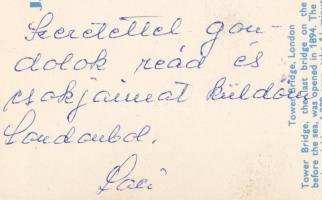 Szeretettel gon-
dolok reád és
csokjaimat küldöm
Londonból.
Laci
Tower Bridge, London
Tower Bridge, the last bridge on the
before the sea, was opened in 1894. The